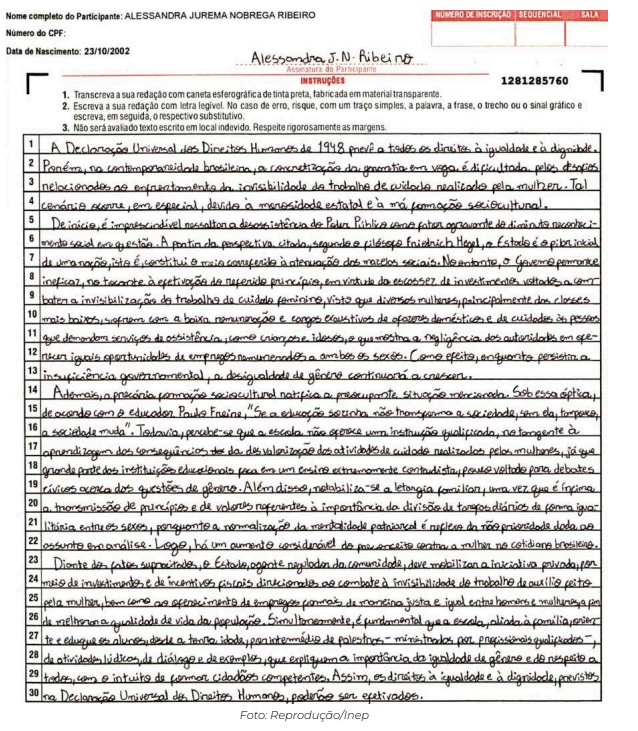 Nome completo do Participante: ALESSANDRA JUREMA NOBREGA RIBEIRO
NÚMERO DE INSCRIÇÃO SEQUENCIAL SALA
Número do CPF:
Data de Nascimento: 23/10/2002
Alessandra J. N. Ribeiro
Assinatura do Participante
INSTRUÇÕES
1281285760
1. Transcreva a sua redação com caneta esferográfica de tinta preta, fabricada em material transparente.
2. Escreva a sua redação com letra legível. No caso de erro, risque, com um traço simples, a palavra, a frase, o trecho ou o sinal gráfico e
escreva, em seguida, o respectivo substitutivo.
3. Não será avaliado texto escrito em local indevido. Respeite rigorosamente as margens.
1 A Declaração Universal dos Direitos Humanos de 1948 prevê a todos os direitos à igualdade e à dignidade.
2 Porém, na contemporaneidade brasileira, a concretização da garantia em voga é dificultada pelos desafios
3 relacionados ao enfrentamento da invisibilidade do trabalho de cuidado realizado pela mulher. Tal
4 cenário ocorre, em especial, devido à morosidade estatal e à má formação sociocultural.
5 De início, é imprescindível ressaltar a desassistência do Poder Público como fator agravante do diminuto reconheci-
6 mento social em questão. A partir da perspectiva citada, segundo o filósofo Friedrich Hegel, o Estado é o pilar inicial
7 de uma nação, isto é, constitui o meio correferido à atenuação das mazelas sociais. No entanto, o Governo permanece
8 ineficaz, no tocante à efetivação do referido princípio, em virtude da escassez de investimentos voltados a com-
9 bater a invisibilização do trabalho de cuidado feminino, visto que diversas mulheres, principalmente das classes
10 mais baixas, sofrem com a baixa remuneração e cargos exaustivos de afazeres domésticos e de cuidados às pessoas
11 que demandam serviços de assistência, como crianças e idosos, o que mostra a negligência das autoridades em ofe-
12 recer iguais oportunidades de empregos remunerados a ambos os sexos. Como efeito, enquanto persistir a
13 insuficiência governamental, a desigualdade de gênero continuará a crescer.
14 Ademais, a precária formação sociocultural ratifica a preocupante situação mencionada. Sob essa óptica,
15 de acordo com o educador Paulo Freire, "Se a educação sozinha não transforma a sociedade, sem ela, tampouco,
16 a sociedade muda". Todavia, percebe-se que a escola não oferece uma instrução qualificada, no tangente à
17 aprendizagem das consequências da desvalorização das atividades de cuidado realizadas pelas mulheres, já que
18 grande parte das instituições educacionais foca em um ensino extremamente conteudista, pouco voltado para debates
19 cívicos acerca das questões de gênero. Além disso, notabiliza-se a letargia familiar, uma vez que é ínfima
20 a transmissão de princípios e de valores referentes à importância da divisão de tarefas diárias de forma igua-
21 litária entre os sexos, porquanto a normalização da mentalidade patriarcal é reflexo da não prioridade dada ao
22 assunto em análise. Logo, há um aumento considerável do preconceito contra a mulher no cotidiano brasileiro.
23 Diante dos fatos supracitados, o Estado, agente regulador da comunidade, deve mobilizar a iniciativa privada, por
24 meio de investimentos e de incentivos fiscais direcionados ao combate à invisibilidade do trabalho de auxílio feito
25 pela mulher, bem como ao oferecimento de empregos formais de maneira justa e igual entre homens e mulheres, a fim
26 de melhorar a qualidade de vida da população. Simultaneamente, é fundamental que a escola, aliada à família, orien-
27 te e eduque os alunos, desde a tenra idade, por intermédio de palestras - ministradas por profissionais qualificados -,
28 de atividades lúdicas, de diálogo e de exemplos, que expliquem a importância da igualdade de gênero e do respeito a
29 todos, com o intuito de formar cidadãos competentes. Assim, os direitos à igualdade e à dignidade, previstos
30 na Declaração Universal dos Direitos Humanos, poderão ser efetivados.
Foto: Reprodução/Inep